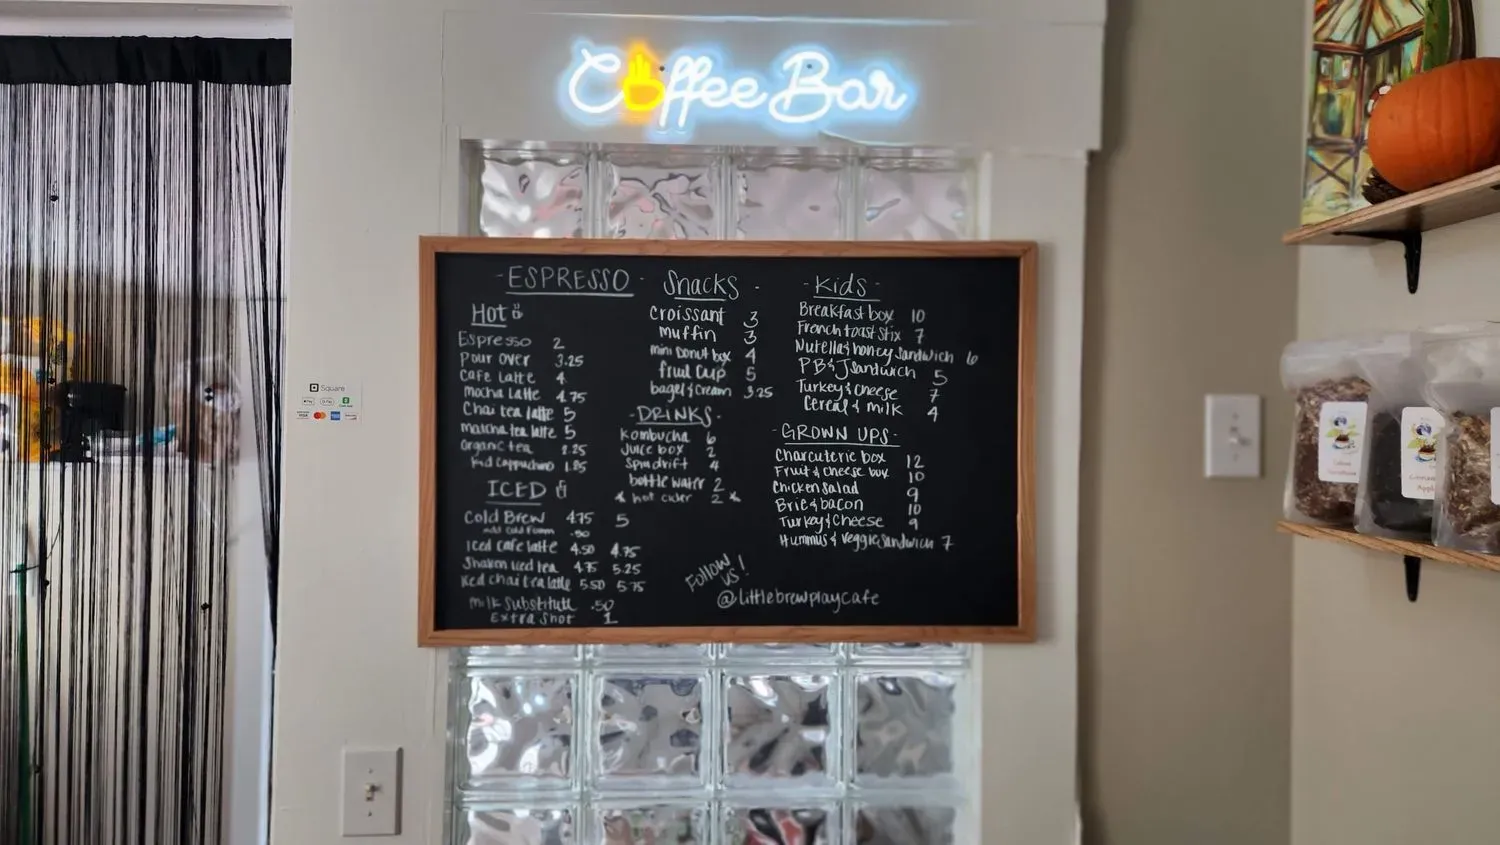 Coffee Bar
- ESPRESSO -
Hot
Espresso 2
Pour over 3.25
Cafe Latte 4
Mocha Latte 4.75
Chai tea latte 5
matcha tea latte 5
organic tea 2.25
Kid cappuchino 1.85
ICED
Cold Brew 4.75 5
add cold foam .50
Iced cafe latte 4.50 4.75
Shaken iced tea 4.75 5.25
Iced chai tea latte 5.50 5.75
Milk Substitute .50
Extra Shot 1
Snacks -
Croissant 3
muffin 3
mini Donut box 4
fruit cup 5
bagel & cream 3.25
- DRINKS -
Kombucha 6
Juice box 2
Spindrift 4
bottle water 2
* hot cider 2 *
- Kids -
Breakfast box 10
French toast stix 7
Nutella & honey Sandwich 6
PB & J sandwich 5
Turkey & cheese 7
Cereal & milk 4
- GROWN UPS -
Charcuterie box 12
Fruit & cheese box 10
Chicken Salad 9
Brie & bacon 10
Turkey & Cheese 9
Hummus & veggie Sandwich 7
Follow
us!
@littlebrewplaycafe
Square